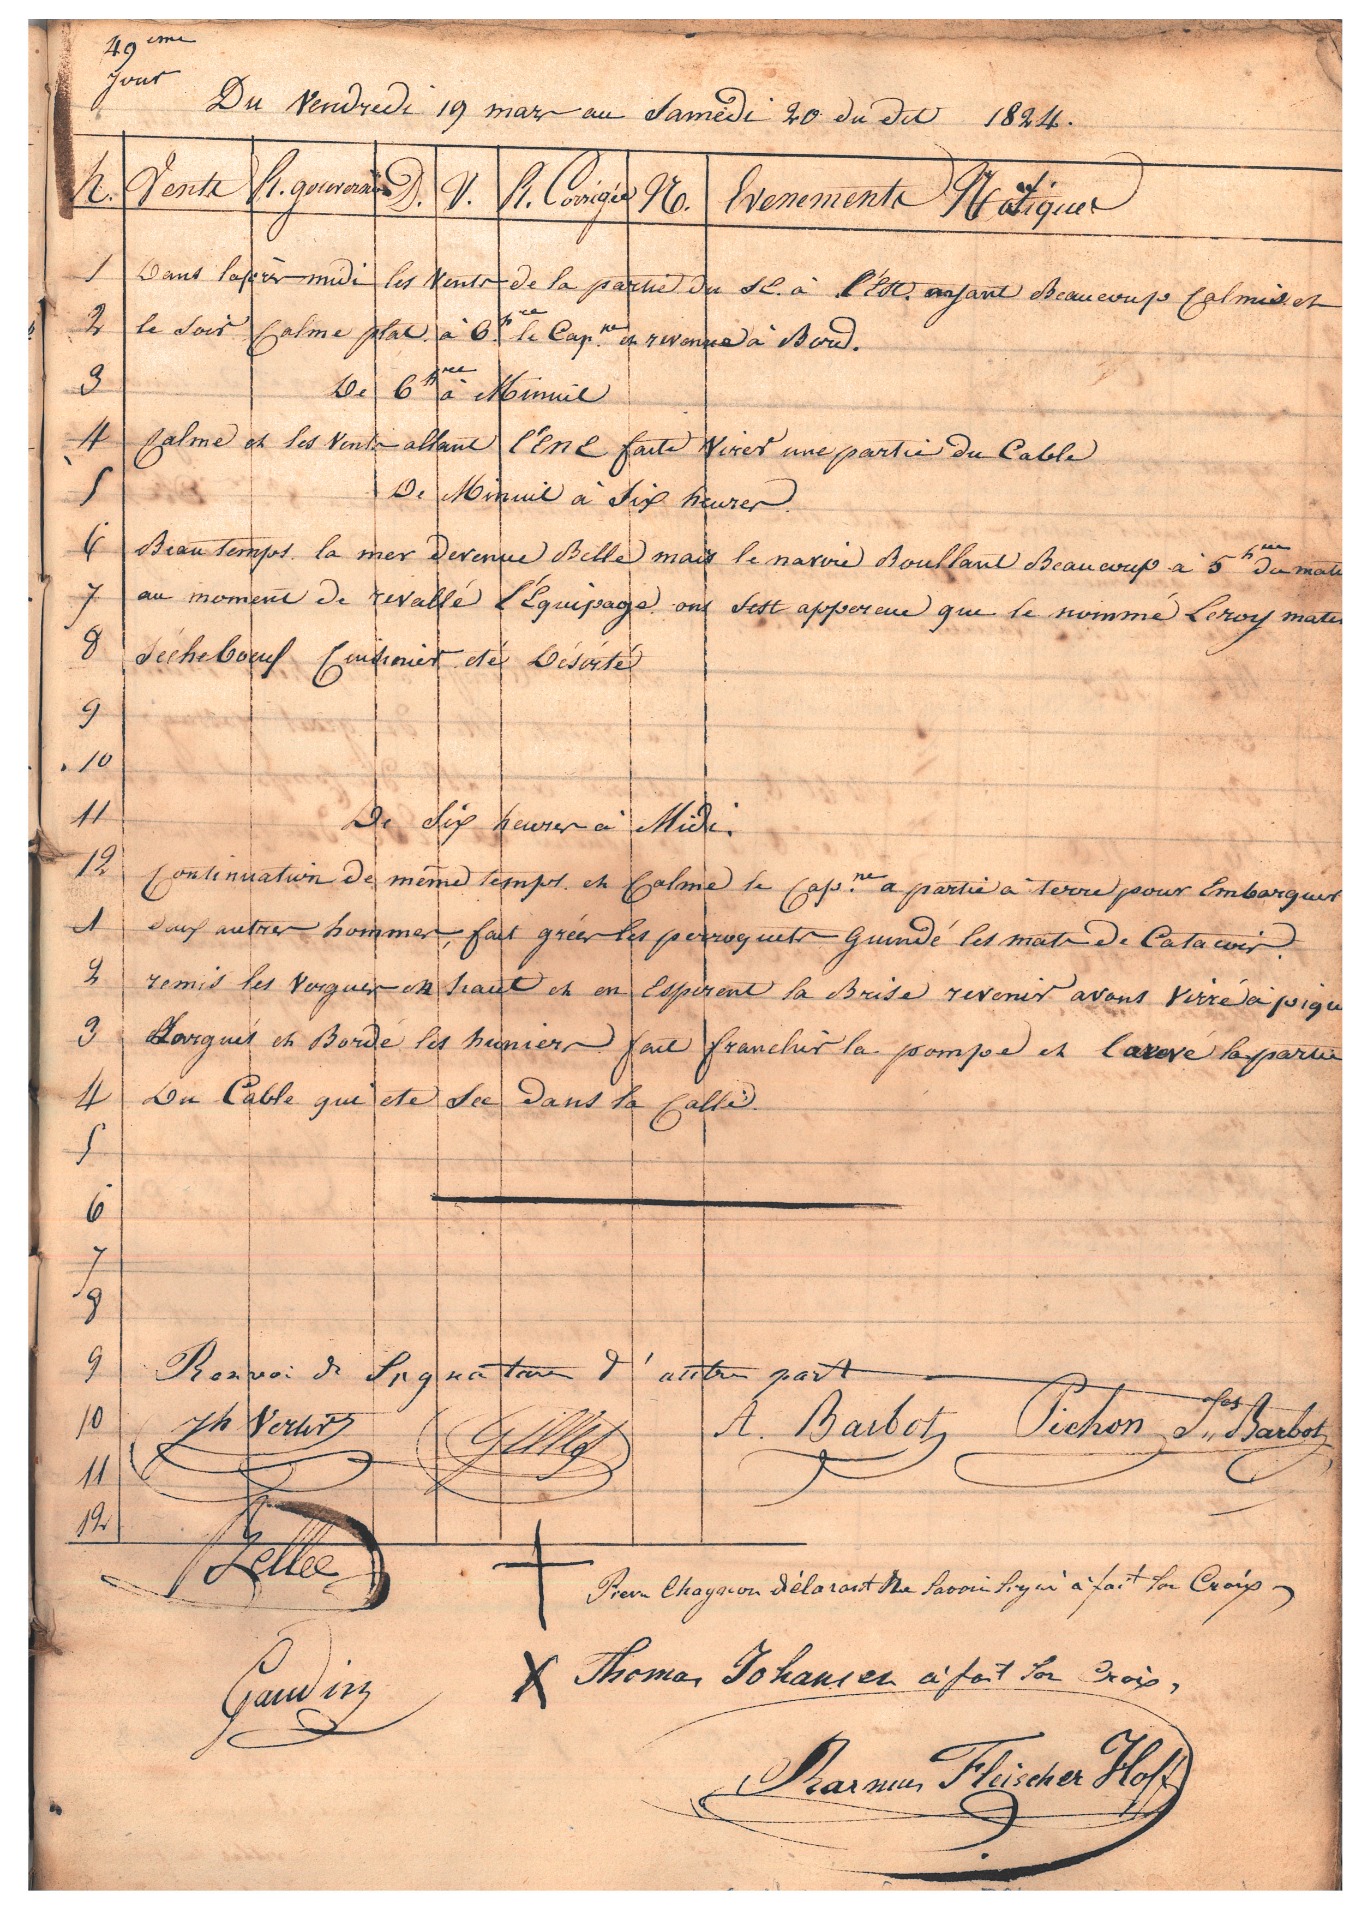 49eme
Jour
Du Vendredi 19 mars au Samedi 20 du dit 1824.
h. Vents R. gouvernée D. V. R. Corrigée N. Evenements Notiques
1 Dans laprès midi les Vents de la partie du SE. à l'Est. ayant Beaucoup Calmis et
2 le soir Calme plat. à 6.hre le Cap.ne et revenue à Bord.
3 De 6hre à Minuit
4 Calme et les Vents allant l'ENE faite Virer une partie du Cable
5 De Minuit à Six heures
6 Beau temps. la mer devenue Belle mais le navire Roullant Beaucoup à 5hre du mati
7 au moment de revallé l'Equipage. ons sest appercue que le nommé Leroy mate
8 Sécheboeuf Cuisinier eté Désérté
9
10
11 De Six heures à Midi.
12 Continuation de même temps. et Calme le Cap.ne a partie à terre pour Embarquer
1 deux autres hommes, fait gréer les perroquets Guindé les mats de Catacoir.
2 remis les Vergues en haut et en Esperent la Brise revenir avons Virré à pique
3 Largués et Bordé les huniers fait franchir la pompe et Laové la partie
4 Du Cable qui ete sec dans la Calle.
5
6
7
8
9 Renvoi de Signature d'autre part
10 Jh Verlers Gillet A. Barbot Pichon Jques Barbot
11
12
Zellee
Pierre Chagneon déclarant ne savoir signé à fait son Croix
Gaudin
X Thomas Johansen à fait son Croix,
Rasmus Fleischer Hoff